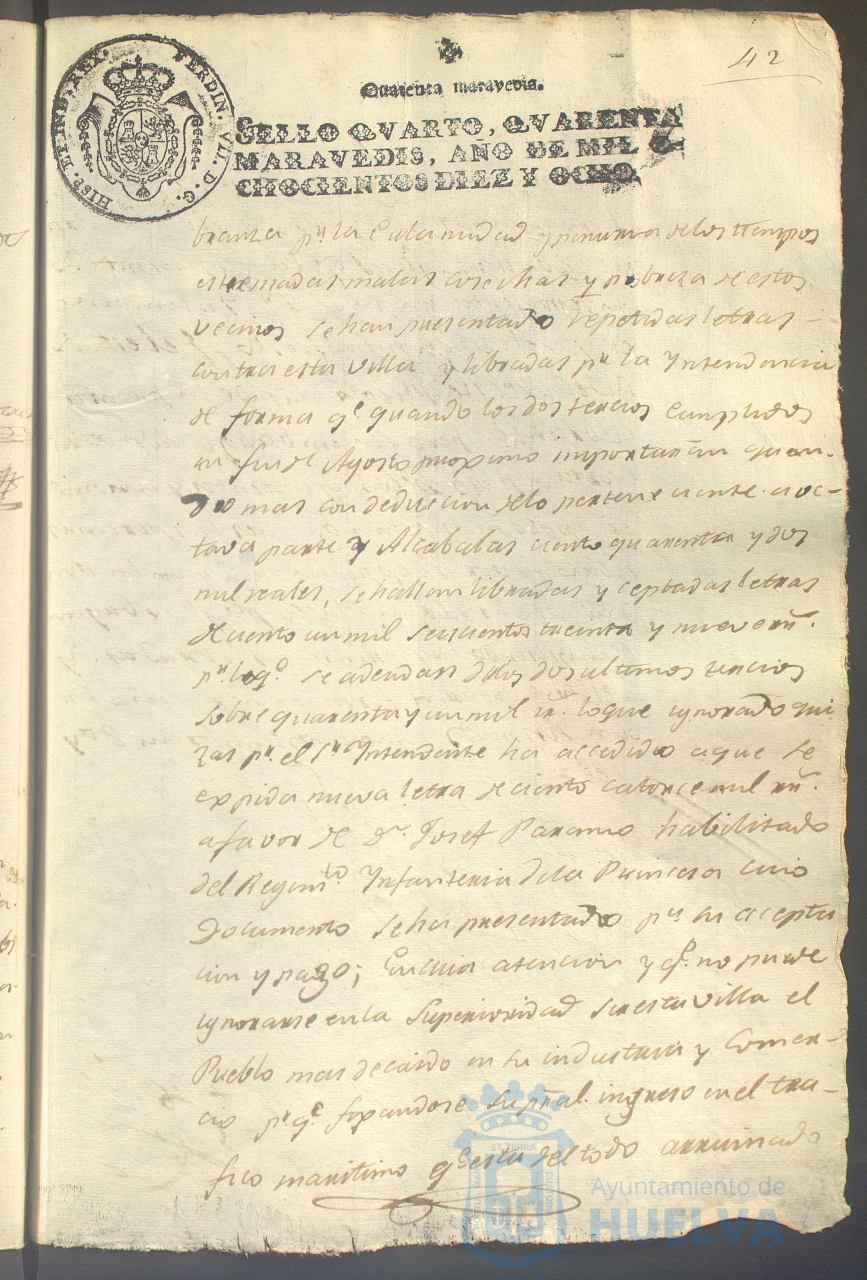 42
Quarenta maravedis.
SELLO QVARTO, QVARENTA
MARAVEDIS, AÑO DE MIL O-
CHOCIENTOS DIEZ Y OCHO.
FERDIN. VII. D. G. HISP. ET IND. REX.
branza pr. la Calamidad y penuria de los tiempos
estremadas malas cosechas y pobreza de estos
vecinos se han presentado repetidas letras
contra esta villa y libradas pr. la Yntendencia
de forma qe. quando los dos tercios cumplidos
en fin de Agosto proximo importarian quan-
do mas con deducion de lo perteneciente a oc-
tava parte y Alcabalas ciento quarenta y dos
mil reales, se hallan librados y ceptadas letras
de ciento un mil seiscientos treinta y nueve rs.
pr. lo qe. se adeudan de los dos ultimos tercios
sobre quarenta y un mil rs. lo que ignorado qui
zas pr. el Sr. Intendente ha accedido a que se
expida nueva letra de ciento catorce mil rs.
a favor de Dn. Josef Paramo habilitado
del Regimto. Ynfanteria de la Princesa cuio
Documento se ha presentado pa. su acepta
cion y pago; En cuia atencion y qe. no puede
ignorarse en la Superioridad ser esta villa el
Pueblo mas decaido en su industria y Comer-
cio pr. qe. fixandose su pral. ingreso en el tra-
fico maritimo qe. esta del todo arruinado
ET TERRÆ
Ayuntamiento de
HUELVA